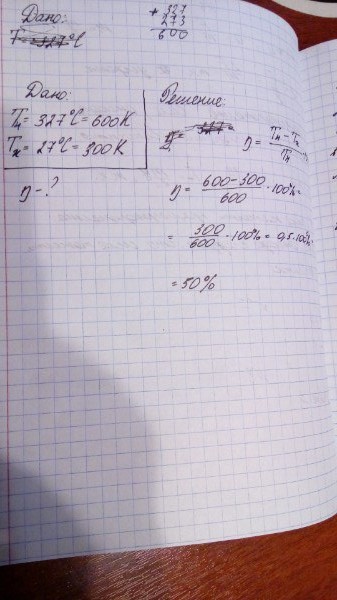 Дано:
+ 327
273
600
T = 327°C
Дано:
Tн = 327°C = 600 K
Tх = 27°C = 300 K
η - ?
Решение:
η = Tн - Tх / Tн
η = 600 - 300 / 600 · 100% =
= 300 / 600 · 100% = 0,5 · 100% =
= 50%